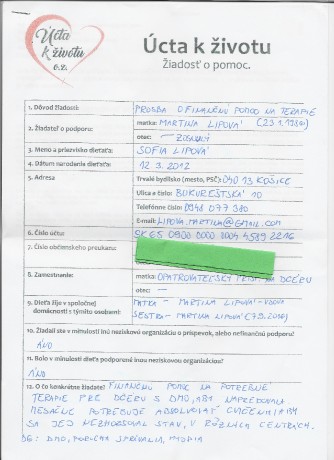 Úcta
k životu
o.z.
Úcta k životu
Žiadosť o pomoc.
1. Dôvod žiadosti:
PROSBA O FINANČNÚ POMOC NA TERAPIE
2. Žiadateľ o podporu:
matka: MARTINA LIPOVÁ (23.1.1984)
otec: — ZOSNULÝ
3. Meno a priezvisko dieťaťa:
SOFIA LIPOVÁ
4. Dátum narodenia dieťaťa:
12.3.2012
5. Adresa
Trvalé bydlisko (mesto, PSČ): 040 13 KOŠICE
Ulica a číslo: BUKUREŠTSKÁ 10
Telefónne číslo: 0948 077 380
E-mail: LIPOVA.MARTINA@GMAIL.COM
6. Číslo účtu:
SK65 0900 0000 0004 4589 2216
7. Číslo občianskeho preukazu:
8. Zamestnanie:
matka: OPATROVATEĽSKÝ NA DCÉRU
otec: —
9. Dieťa žije v spoločnej
domácnosti s týmito osobami:
MATKA - MARTINA LIPOVÁ - VDOVA
SESTRA - MARTINA LIPOVÁ
10. Žiadali ste v minulosti inú neziskovú organizáciu o príspevok, alebo nefinančnú podporu?
ÁNO
11. Bolo v minulosti dieťa podporené inou neziskovou organizáciou?
ÁNO
12. O čo konkrétne žiadate? FINANČNÚ POMOC NA POTREBNÉ
TERAPIE PRE DCÉRU S DMO, ABY NAPREDOVALA
NESAČNE POTREBUJE ABSOLVOVAŤ CVIČENIA ABY
SA JEJ NEZHORŠOVAL STAV, V RÔZNICH CENTRÁCH.
DG: DMO, PORUCHA SPRÁVANIA, MYOPIA